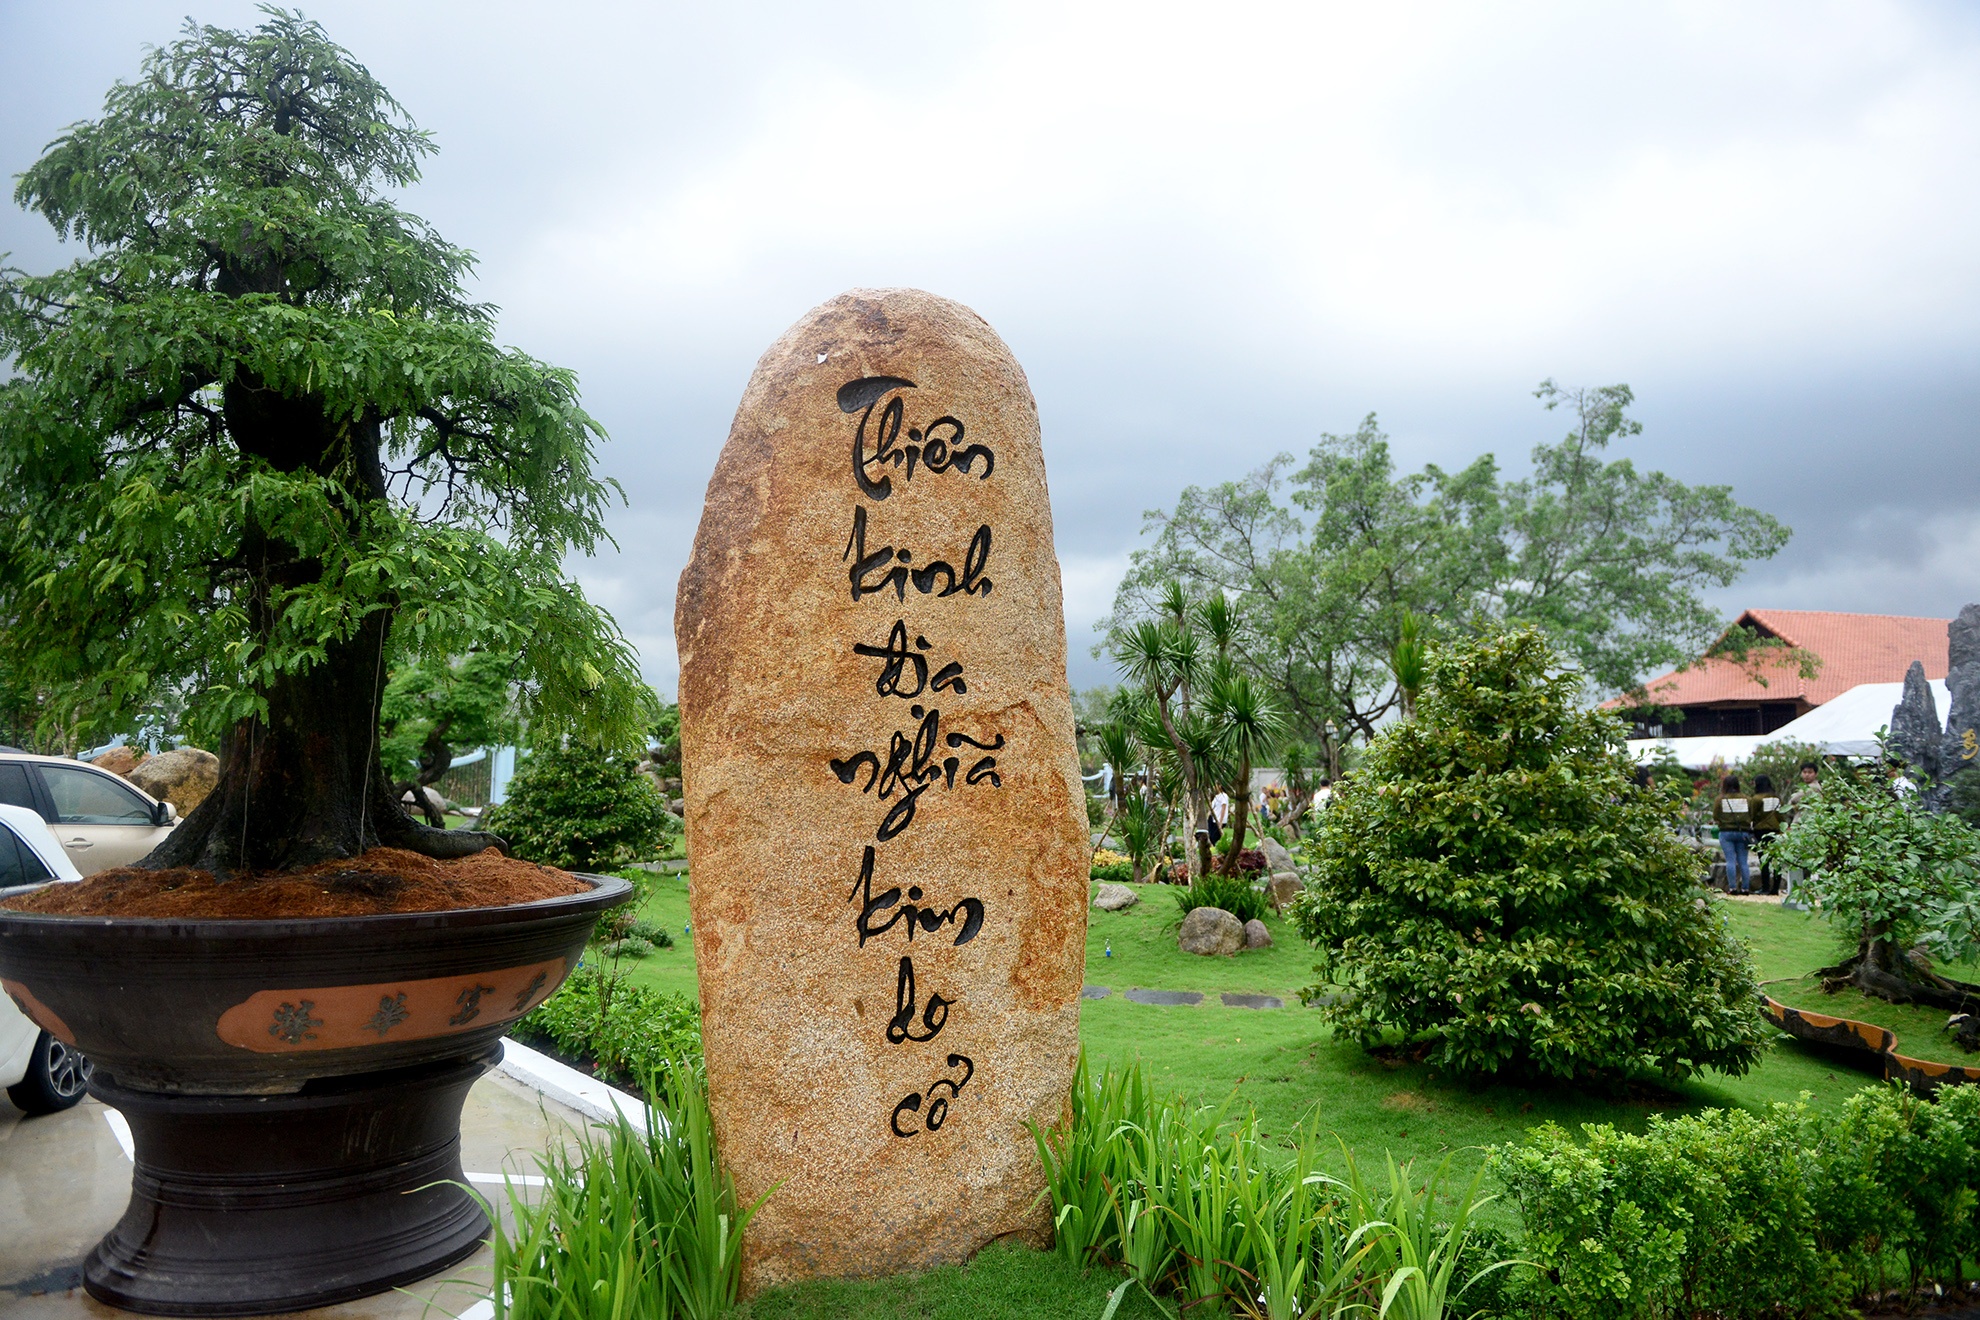 Thiên
kinh
địa
nghĩa
kim
do
cổ
榮華富貴